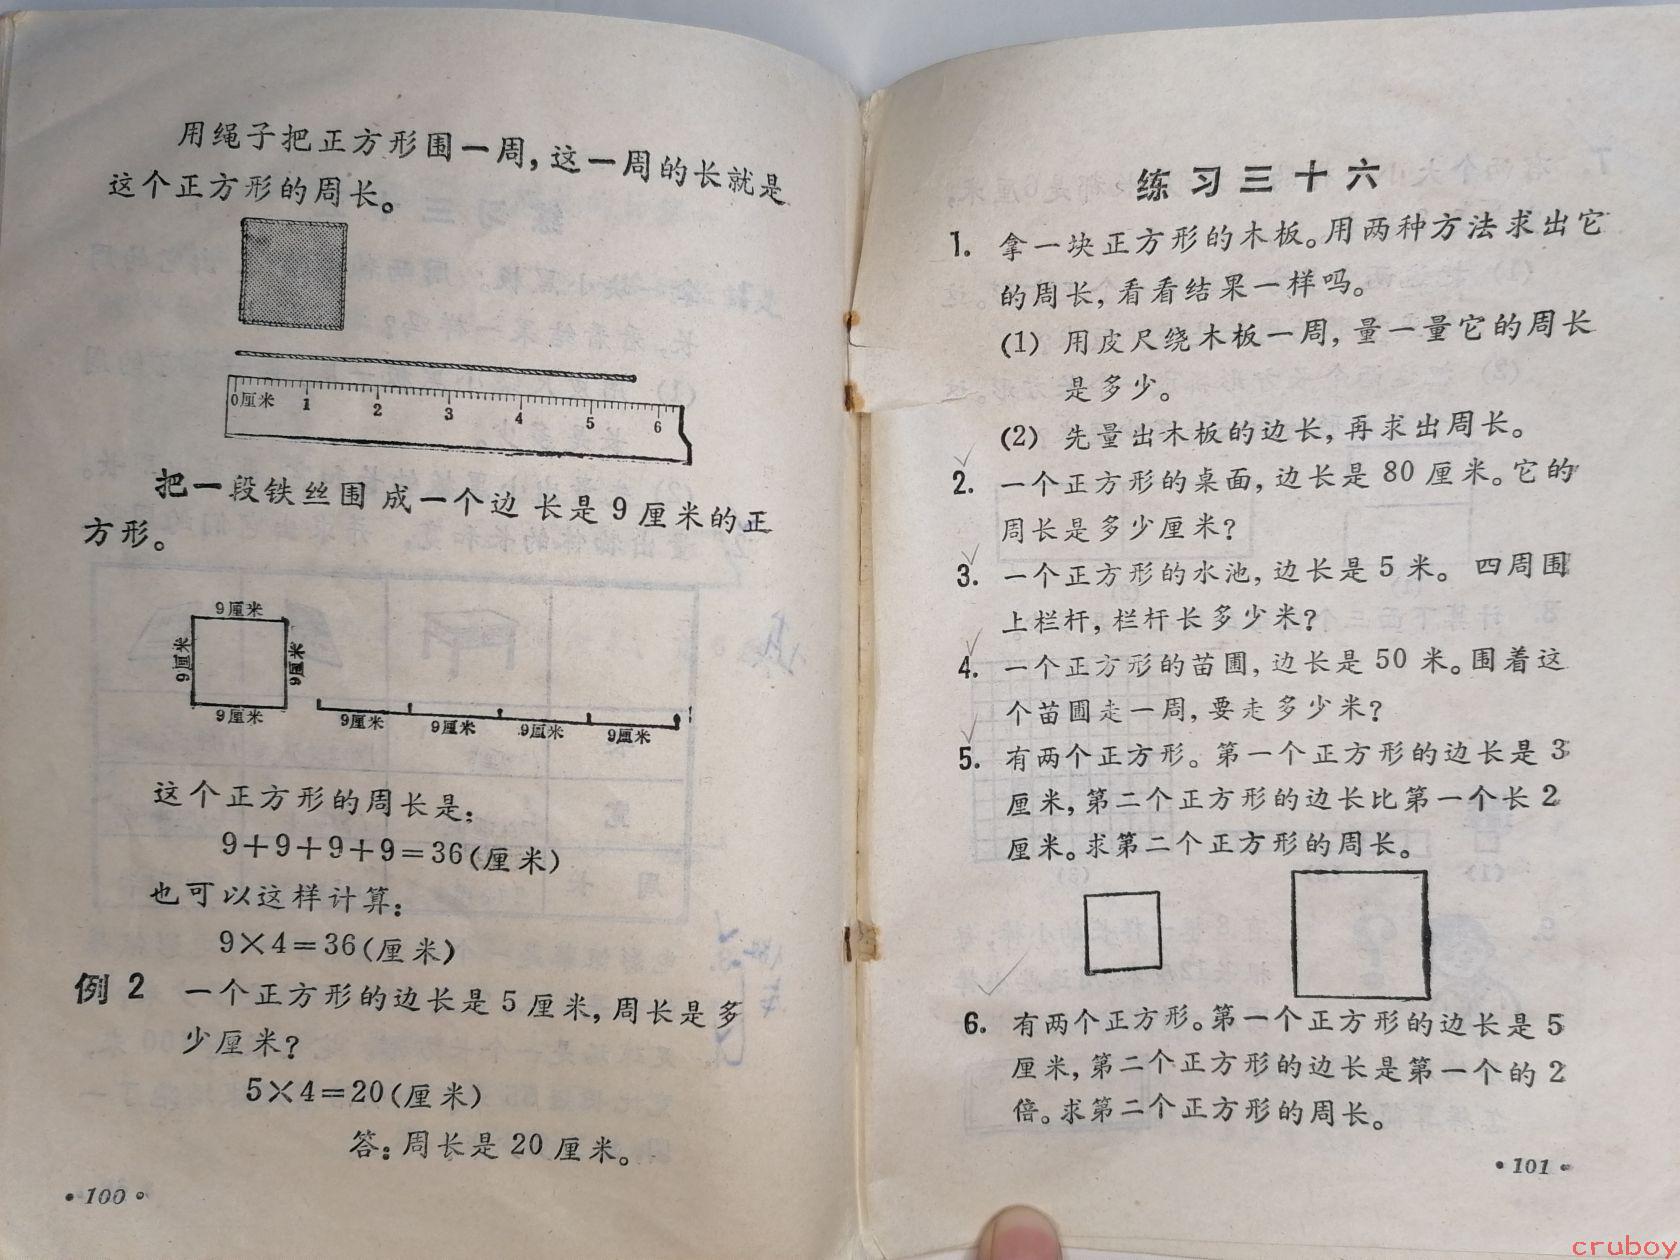 用绳子把正方形围一周,这一周的长就是
这个正方形的周长。
0厘米 1 2 3 4 5 6
把一段铁丝围成一个边长是9厘米的正
方形。
9厘米
9厘米
9厘米
9厘米
9厘米 9厘米 9厘米 9厘米
这个正方形的周长是:
9+9+9+9=36(厘米)
也可以这样计算:
9×4=36(厘米)
例2 一个正方形的边长是5厘米,周长是多
少厘米?
5×4=20(厘米)
答:周长是20厘米。
·100·
练习三十六
1. 拿一块正方形的木板。用两种方法求出它
的周长,看看结果一样吗。
(1) 用皮尺绕木板一周,量一量它的周长
是多少。
(2) 先量出木板的边长,再求出周长。
2. 一个正方形的桌面,边长是80厘米。它的
周长是多少厘米?
3. 一个正方形的水池,边长是5米。四周围
上栏杆,栏杆长多少米?
4. 一个正方形的苗圃,边长是50米。围着这
个苗圃走一周,要走多少米?
5. 有两个正方形。第一个正方形的边长是3
厘米,第二个正方形的边长比第一个长2
厘米。求第二个正方形的周长。
6. 有两个正方形。第一个正方形的边长是5
厘米,第二个正方形的边长是第一个的2
倍。求第二个正方形的周长。
·101·
cruboy